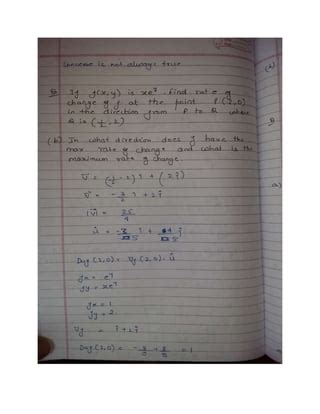 Converse is not always true
Q If f(x,y) is xe^y, find rate of
change of f at the point P(2,0)
in the direction from P to Q where
Q is (1/2, 2)
(b) In what direction does f have the
max. rate of change and what is the
maximum rate of change.
v̄ = (1/2 - 2) î + (2 ĵ)
v̄ = -3/2 î + 2 ĵ
|v̄| = 25/4
ū =
Duf(2,0) = ∇f(2,0)·ū
fx = e^y
fy = xe^y
fx = 1
fy = 2
∇f = î + 2ĵ
Duf(2,0) = -3/5 + 8/5 = 1